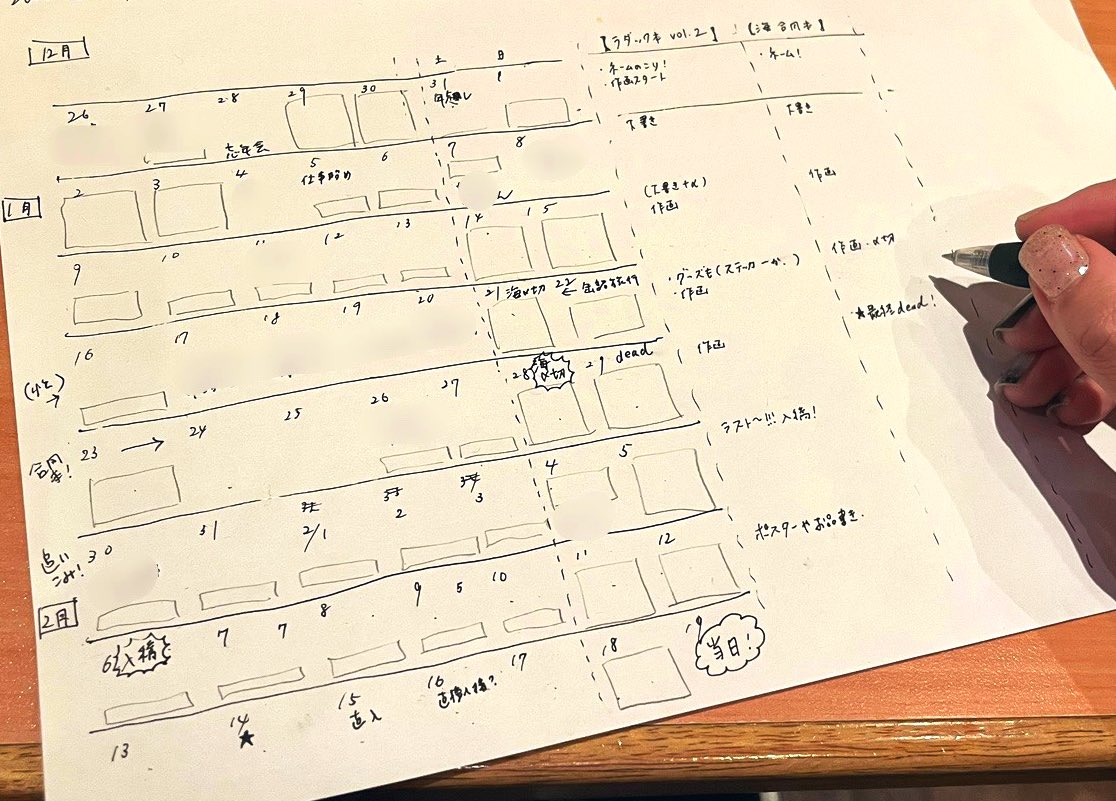 12月
土 日
【ラダック本 vol.2】 【海合同本】
26 27 28 29 30 31 1
年越し
・ネームのこり!
・作画スタート
・ネーム!
忘年会
1月
2 3 4 5 6 7 8
仕事始め
下書き
下書き
9 10 11 12 13 14 15
(下書き+α)
作画
作画
16 17 18 19 20 21 海〆切 22
・グッズも(ステッカーか.)
・作画
作画・〆切
23 → 24 25 26 27 28 〆切 29 dead
作画
★最終dead!
合同本!
追いこみ!
30 31 2/1 2 3 4 5
ラスト〜!!! 入稿!
2月
6 入稿 7 7 8 9 5 10 11 12
ポスターやお品書き.
13 14 15 16 17 18 19 当日!
★ 直入 直接入稿?